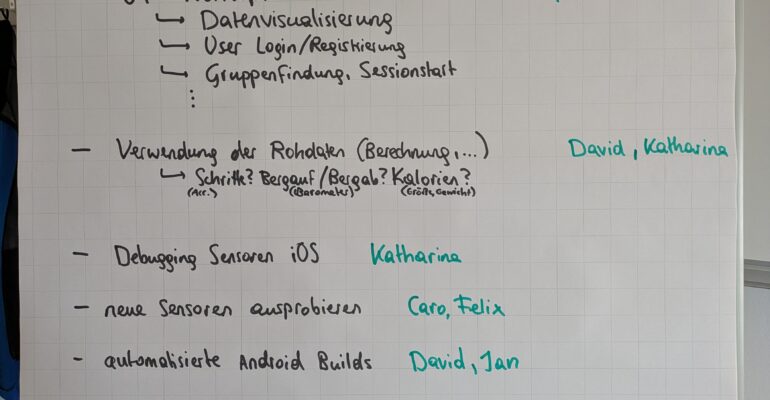 ↳ Datenvisualisierung
↳ User Login/Registrierung
↳ Gruppenfindung, Sessionstart
⋮
– Verwendung der Rohdaten (Berechnung,...) David, Katharina
↳ Schritte? Bergauf/Bergab? Kalorien?
(Acc.) (Barometer) (Größe, Gewicht)
– Debugging Sensoren iOS Katharina
– neue Sensoren ausprobieren Caro, Felix
– automatisierte Android Builds David, Jan